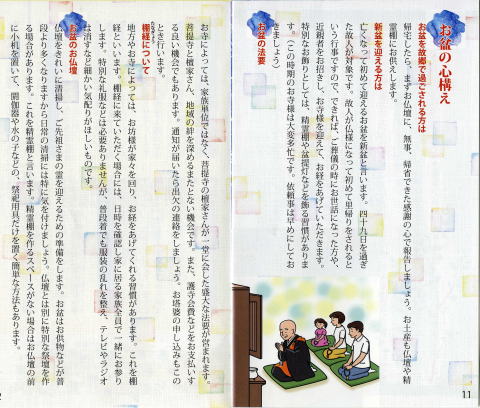 お盆の心構え
お盆を故郷で過ごされる方は
帰宅したら、まずお仏壇に、無事、帰省できた感謝の心で報告しましょう。お土産も仏壇や精
霊棚にお供えします。
新盆を迎える方は
亡くなって初めて迎えるお盆を新盆と言います。四十九日を過ぎ
た故人が対象です。故人が仏様になって初めて里帰りをされると
いう行事ですので、できれば、ご葬儀の時にお世話になった方や、
近親者をお招きし、お寺様を迎えて、お経をあげていただきます。
特別なお飾りとしては、精霊棚や盆提灯などを飾る習慣がありま
す。（この時期のお寺様は大変多忙です。依頼事は早めにしてお
きましょう）
お盆の法要
お寺によっては、家族単位ではなく、菩提寺の檀家さんが一堂に会した盛大な法要が営まれます。
菩提寺と檀家さん、地域の絆を深めるまたとない機会です。また、護寺会費などをお支払いす
る良い機会でもあります。通知が届いたら出欠の連絡をしましょう。お塔婆の申し込みもこの
とき行います。
棚経について
地方やお寺によっては、お坊様が家々を回り、お経をあげてくれる習慣があります。これを棚
経といいます。棚経に来ていただく場合には、日時を確認し家に居る家族全員で一緒にお参り
します。特別な礼服などは必要ありませんが、普段着でも服装の乱れを整え、テレビやラジオ
は消すなど細かい気配りがほしいものです。
お盆のお仏壇
仏壇をきれいに清掃し、ご先祖さまの霊を迎えるための準備をします。お盆はお供物などが普
段より多くなりますから日常の清掃には特に気をけましょう。仏壇とは別に特別な祭壇を作
る場合があります。これを精霊棚と言います。精霊棚を作るスペースがない場合はお仏壇の前
に小机を置いて、閼伽器や水の子などの、祭祀用具だけを置く簡単な方法もあります。
11